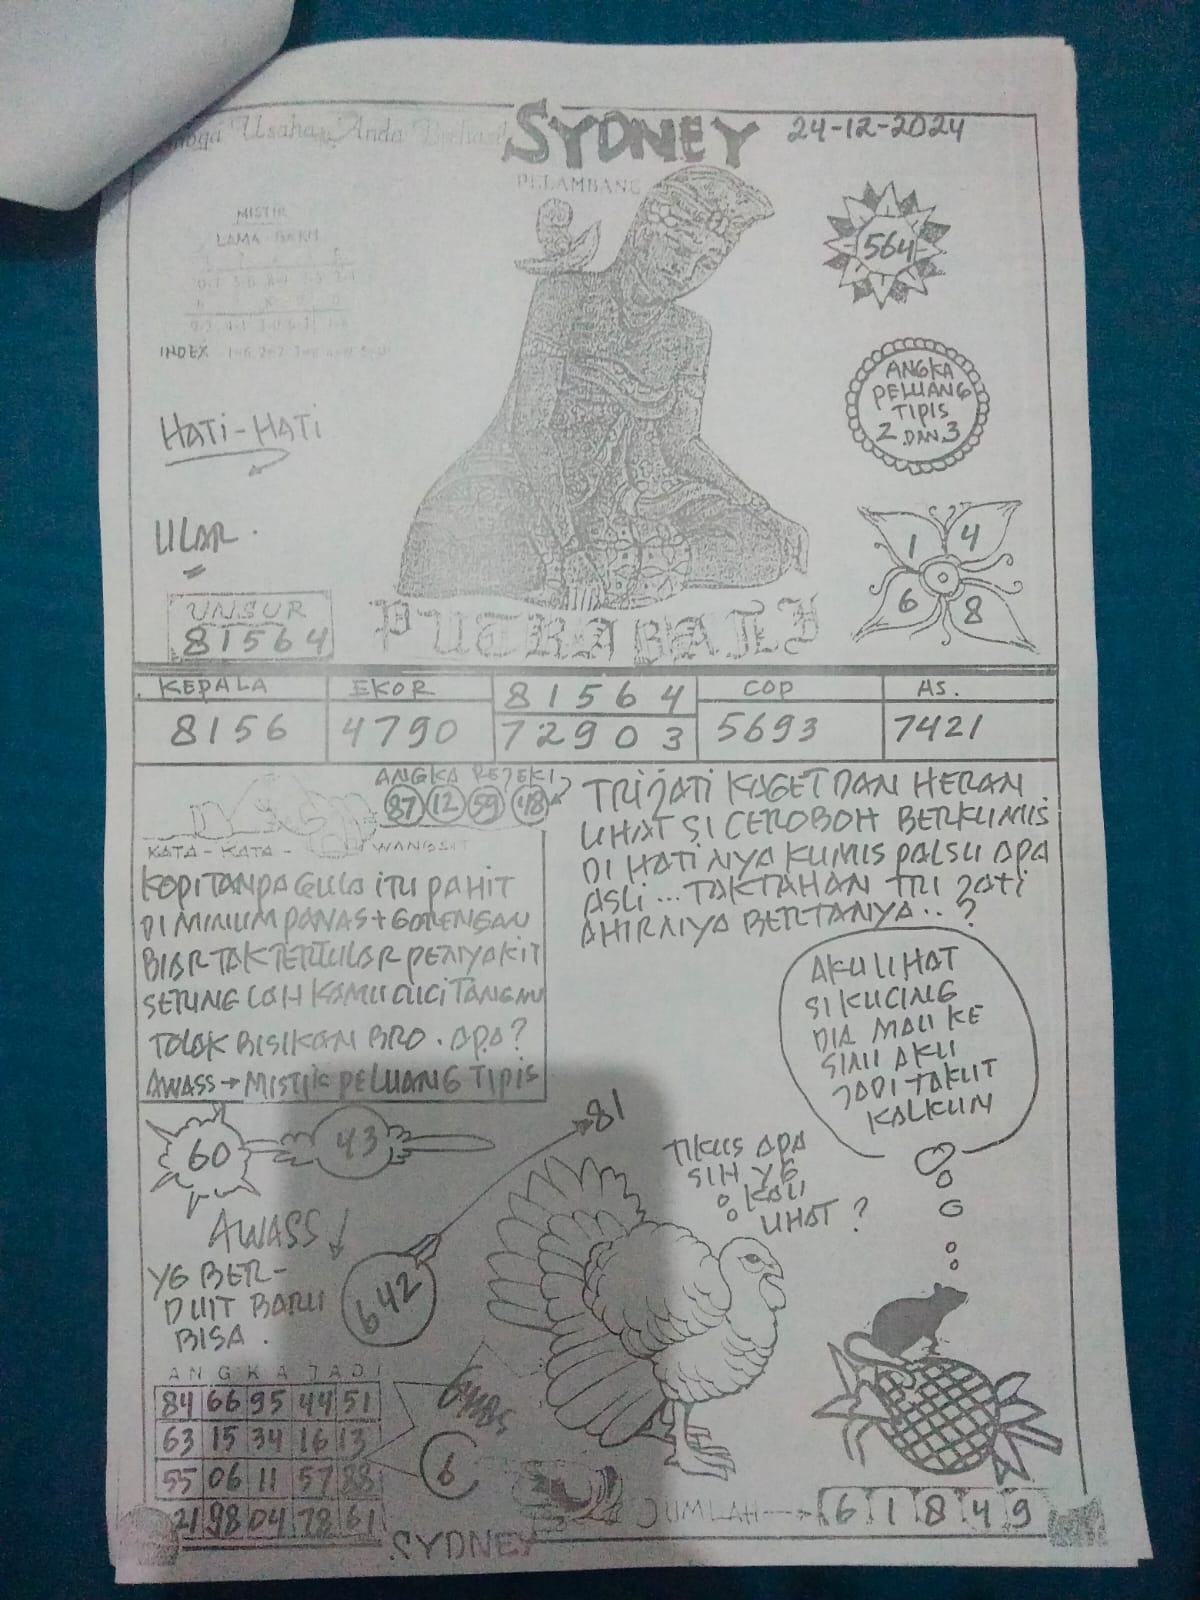 Usaha Anda
SYDNEY 24-12-2024
PELAMBANG
MISTIK
LAMA - BARU
INDEX
564
ANGKA
PELUANG
TIPIS
2 DAN 3
HATI-HATI
ULAR.
1 4
6 8
UNSUR
81564
PUTRA BALI
KEPALA EKOR 81564 COP AS.
8156 4790 72903 5693 7421
ANGKA REJEKI
87 12 59 48
KATA - KATA - WANGSIT
KOPI TANPA GULA ITU PAHIT
DI MINUM PANAS + GORENGAN
BIAR TAK TERTULAR PENYAKIT
SERING LAH KAMU CUCI TANGAN
TOLAK BISIKAN BRO. APA?
AWASS → MISTIK PELUANG TIPIS
TRIJATI KAGET DAN HERAN
LIHAT SI CEROBOH BERKUMIS
DI HATI NYA KUMIS PALSU APA
ASLI... TAK TAHAN TRI JATI
AHIRNYA BERTANYA..?
AKU LIHAT
SI KUCING
DIA MAU KE
SINI AKU
JADI TAKUT
KALKUN
TIKUS APA
SIH YG
KAU
LIHAT ?
60 43
81
AWASS
YG BER-
DUIT BARU
BISA.
642
ANGKA JADI
84 66 95 44 51
63 15 34 16 13
55 06 11 57 88
21 98 04 78 61
6
JUMLAH → 6 1 8 4 9
SYDNEY